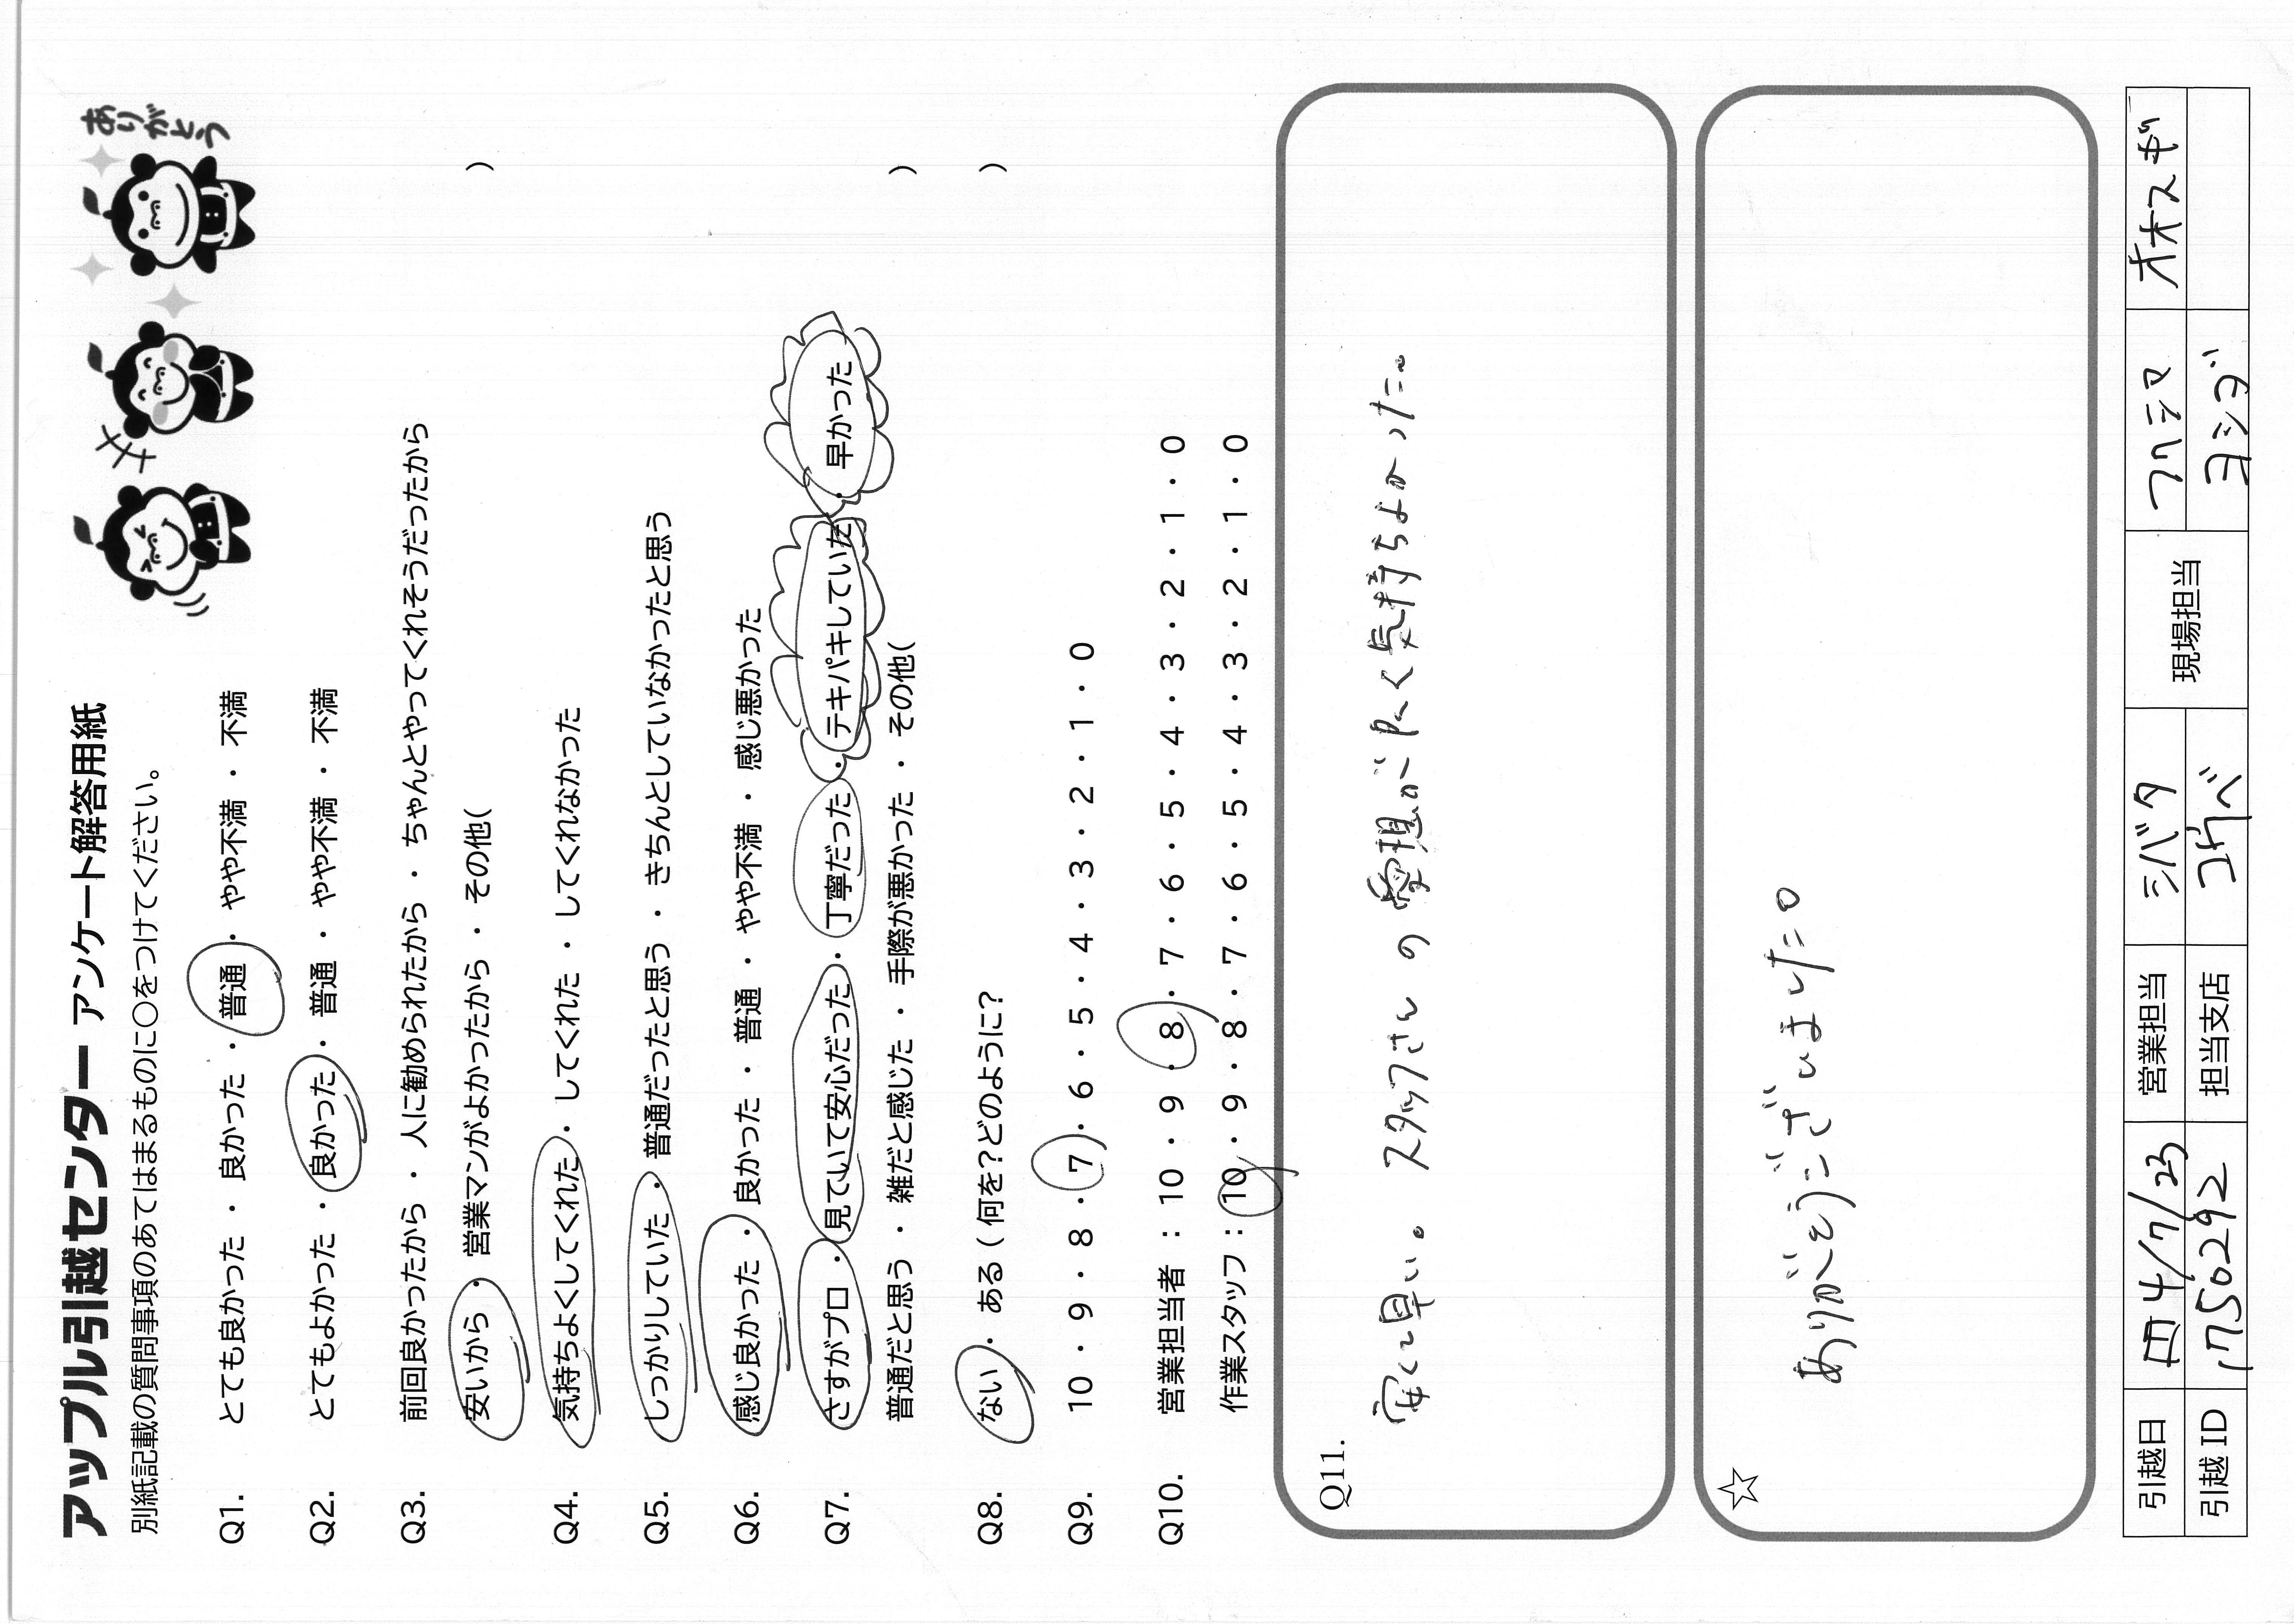 アップル引越センター アンケート解答用紙
別紙記載の質問事項のあてはまるものに〇をつけてください。
ありがとう
Q1. とても良かった ・ 良かった ・ 普通 ・ やや不満 ・ 不満
Q2. とてもよかった ・ 良かった ・ 普通 ・ やや不満 ・ 不満
Q3. 前回良かったから ・ 人に勧められたから ・ ちゃんとやってくれそうだったから
安いから ・ 営業マンがよかったから ・ その他( )
Q4. 気持ちよくしてくれた ・ してくれた ・ してくれなかった
Q5. しっかりしていた ・ 普通だったと思う ・ きちんとしていなかったと思う
Q6. 感じ良かった ・ 良かった ・ 普通 ・ やや不満 ・ 感じ悪かった
Q7. さすがプロ ・ 見ていて安心だった ・ 丁寧だった ・ テキパキしていた ・ 早かった
普通だと思う ・ 雑だと感じた ・ 手際が悪かった ・ その他( )
Q8. ない ・ ある ( 何を?どのように? )
Q9. 10 ・ 9 ・ 8 ・ 7 ・ 6 ・ 5 ・ 4 ・ 3 ・ 2 ・ 1 ・ 0
Q10. 営業担当者 : 10 ・ 9 ・ 8 ・ 7 ・ 6 ・ 5 ・ 4 ・ 3 ・ 2 ・ 1 ・ 0
作業スタッフ : 10 ・ 9 ・ 8 ・ 7 ・ 6 ・ 5 ・ 4 ・ 3 ・ 2 ・ 1 ・ 0
Q11.
安くて早い。 スタッフさんの愛想が良く気持ちよかった。
☆
ありがとうございました。
引越日 4/7/23 営業担当 シバタ 現場担当 フクシマ オオスギ
引越ID 1750292 担当支店 コウベ ヨシダ